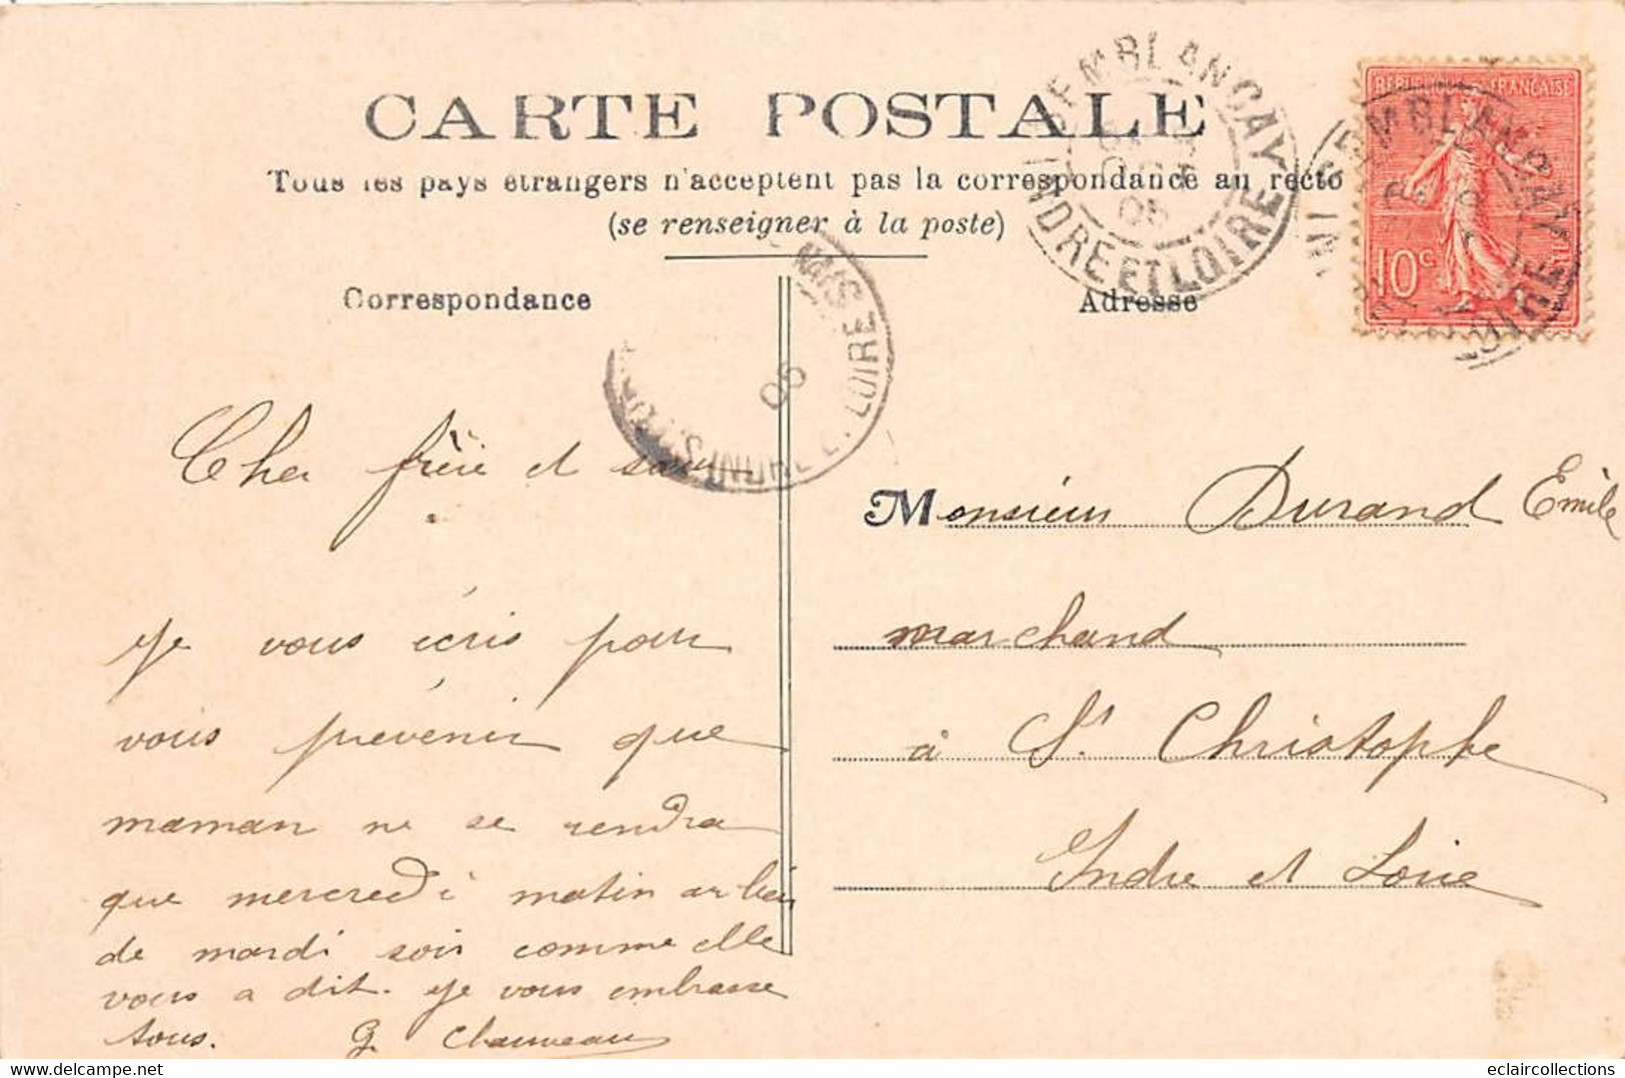 CARTE POSTALE
Tous les pays étrangers n'acceptent pas la correspondance au recto
(se renseigner à la poste)
Correspondance
Adresse
SEMBLANCAY
INDRE ET LOIRE
05
REPUBLIQUE FRANÇAISE
10c
SEMBLANCAY
LOIRE
INDRE E. LOIRE
05
Cher frère et sœur
Je vous écris pour
vous prévenir que
maman ne se rendra
que mercredi matin au lieu
de mardi soir comme elle
vous a dit. Je vous embrasse
tous. G. Chauveau
Monsieur Durand Emile
marchand
à St. Christophe
Indre et Loire
eclaircollections